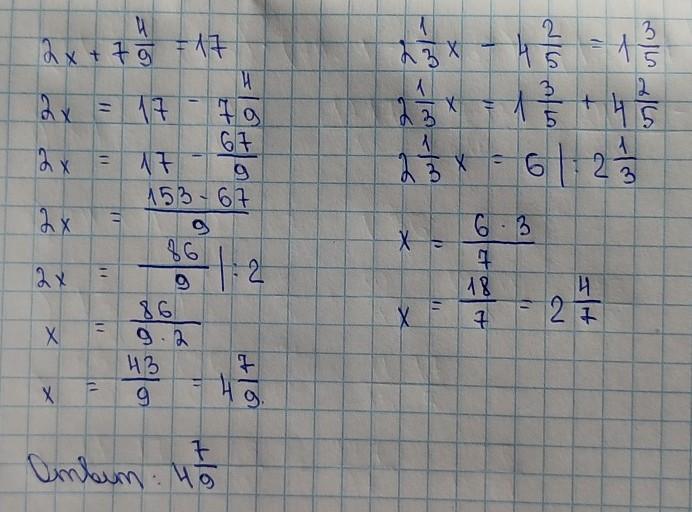 2x + 7 4/9 = 17
2x = 17 - 7 4/9
2x = 17 - 67/9
2x = (153 - 67)/9
2x = 86/9 |: 2
x = 86/(9 · 2)
x = 43/9 = 4 7/9
Ответ: 4 7/9
2 1/3 x - 4 2/5 = 1 3/5
2 1/3 x = 1 3/5 + 4 2/5
2 1/3 x = 6 |: 2 1/3
x = (6 · 3)/7
x = 18/7 = 2 4/7